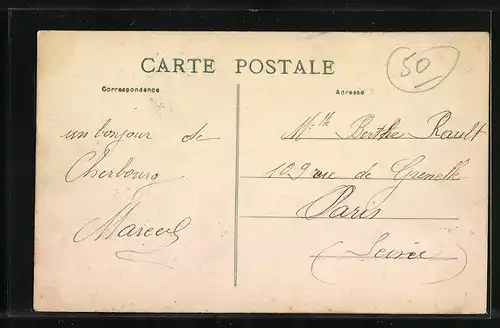 CARTE POSTALE
50
Correspondance
Adresse
un bonjour de
Cherbourg
Marcel
Mlle Berthe Rault
109 rue de Grenelle
Paris
(Seine)